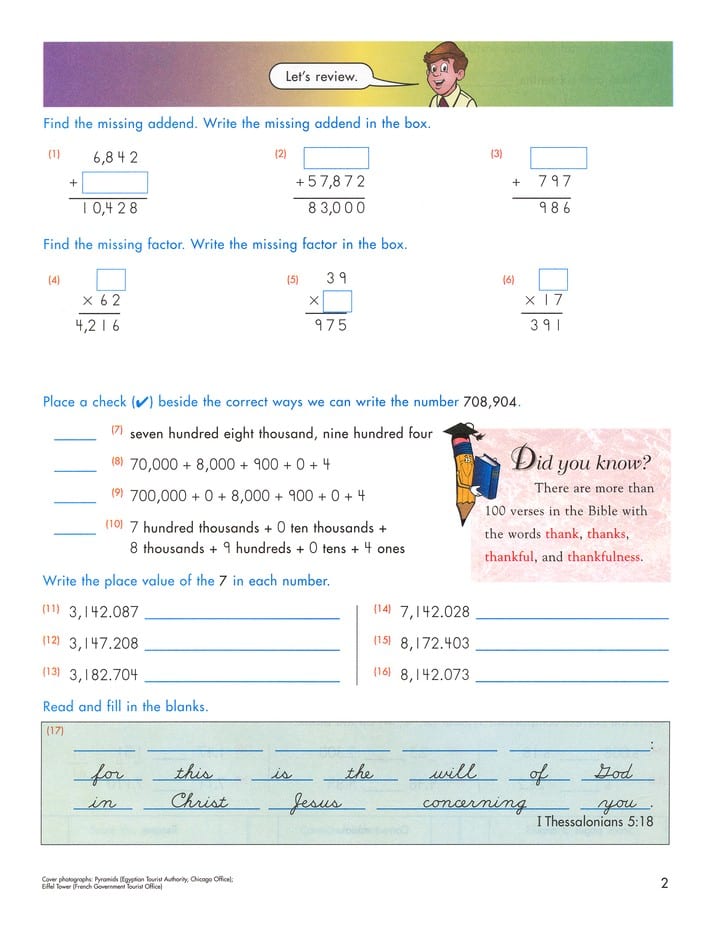 Let's review.
Find the missing addend. Write the missing addend in the box.
(1) 6,842 (2) (3)
+ +57,872 + 797
10,428 83,000 986
Find the missing factor. Write the missing factor in the box.
(4) (5) 39 (6)
× 62 × × 17
4,216 975 391
Place a check (✔) beside the correct ways we can write the number 708,904.
(7) seven hundred eight thousand, nine hundred four
(8) 70,000 + 8,000 + 900 + 0 + 4
(9) 700,000 + 0 + 8,000 + 900 + 0 + 4
(10) 7 hundred thousands + 0 ten thousands +
8 thousands + 9 hundreds + 0 tens + 4 ones
Did you know?
There are more than
100 verses in the Bible with
the words thank, thanks,
thankful, and thankfulness.
Write the place value of the 7 in each number.
(11) 3,142.087
(12) 3,147.208
(13) 3,182.704
(14) 7,142.028
(15) 8,172.403
(16) 8,142.073
Read and fill in the blanks.
(17)
:
for this is the will of God
in Christ Jesus concerning you.
I Thessalonians 5:18
Cover photographs: Pyramids (Egyptian Tourist Authority, Chicago Office);
Eiffel Tower (French Government Tourist Office)
2